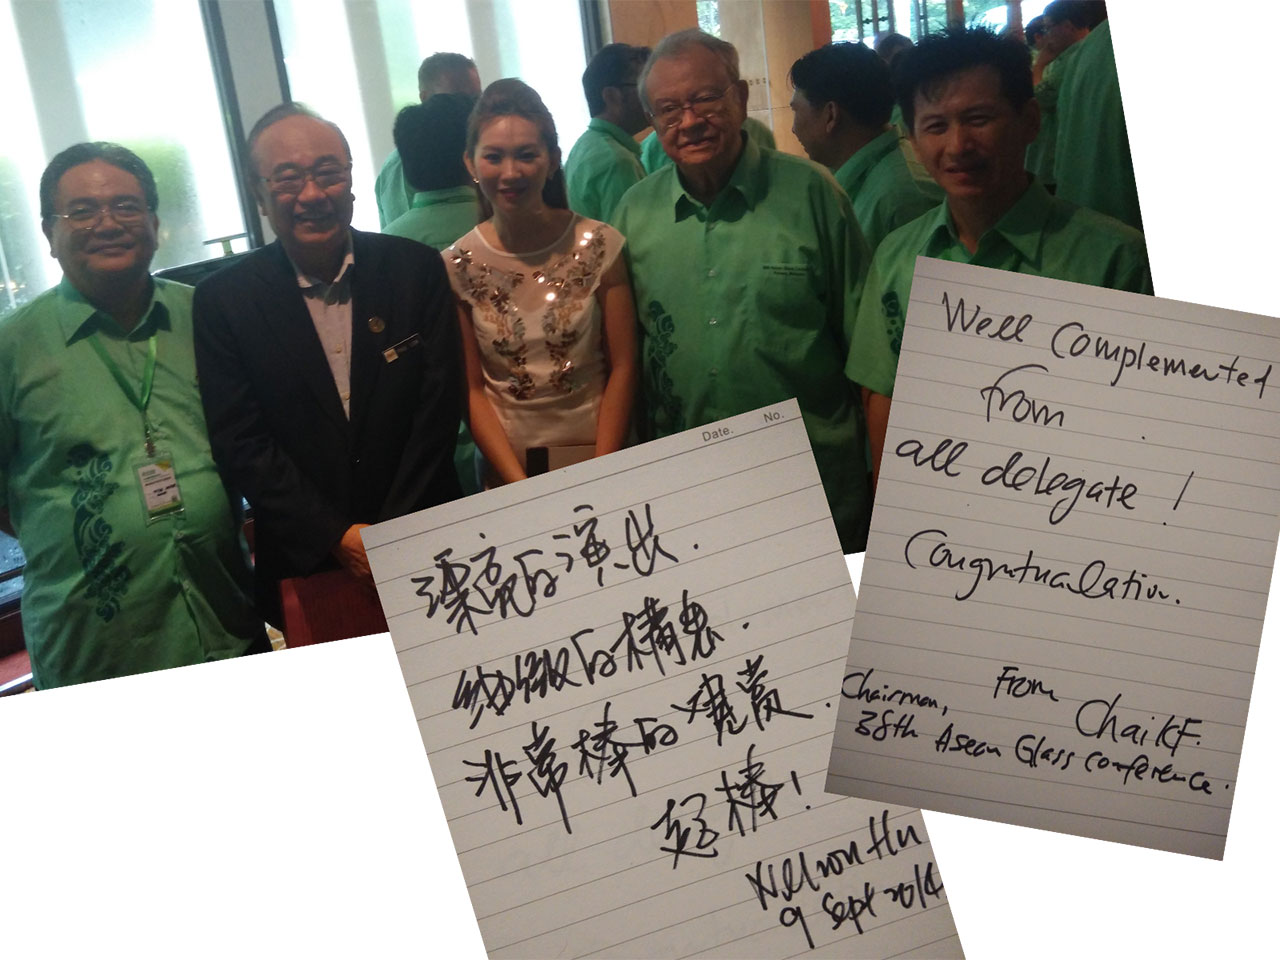 Date. No.
漂亮的演出.
細緻的構思.
非常棒的
超棒!
Nelson Hu
9 Sept 2014
Well Complemented
from
all delegate !
Congratualation.
From ChaiKF.
Chairman,
38th Asean Glass Conference.